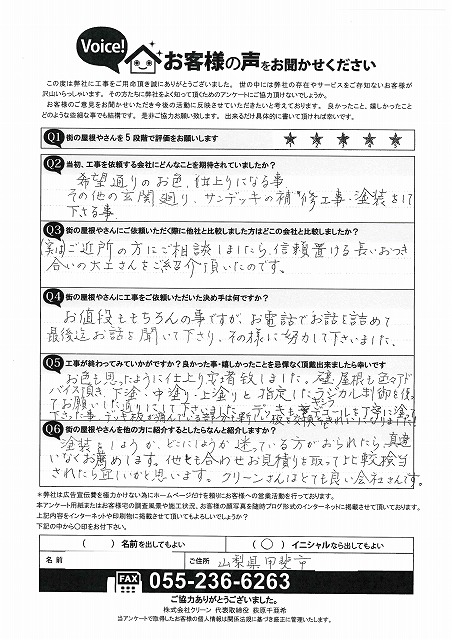 Voice! お客様の声をお聞かせください
この度は弊社に工事をご用命頂き誠にありがとうございました。 世の中には弊社の存在やサービスをご存知ないお客様が
沢山いらっしゃいます。その方たちに弊社をよく知って頂くためのアンケートにご協力頂けないでしょうか。
お客様のご意見をお聞かせいただき今後の活動に反映させていただきたいと考えております。 良かったこと、嬉しかったこと
どのような些細な事でも結構です。 是非ご協力お願い致します。 出来るだけ具体的に書いて頂ければ幸いです。
Q1 街の屋根やさんを5段階で評価をお願いします
1 2 3 4 5
Q2 当初、工事を依頼する会社にどんなことを期待されていましたか?
希望通りのお色、仕上りになる事
その他の玄関廻り、サンデッキの補修工事・塗装をして
下さる事。
Q3 街の屋根やさんにご依頼いただく際に他社と比較しました方はどこの会社と比較しましたか?
(実は)ご近所の方にご相談しましたら、信頼置ける長いおつき
合いの大工さんをご紹介頂いたのです。
Q4 街の屋根やさんに工事をご依頼いただいた決め手は何ですか?
お値段ももちろんの事ですが、お電話でお話を詰めて
最後迄お話を聞いて下さり、その様に努力して下さいました。
Q5 工事が終わってみていかがですか?良かった事・嬉しかったことを忌憚なく頂戴出来ましたら幸いです
お色も思ったように仕上り安堵致しました。壁、屋根も色々アド
バイス頂き、下塗・中塗り・上塗りと指定したラジカル制御を使っ
てお願いした通りにして下さいました。デッキも
Q6 街の屋根やさんを他の方に紹介するとしたらなんと紹介しますか?
塗装をしようか、どこにしようか迷っている方がおられたら、間違
いなくお薦めします。他とも合わせお見積りを取って比較検当
されたら宜しいかと思います。クリーンさんはとても良い会社さんです。
*弊社は広告宣伝費を極力かけない為にホームページだけを頼りにお客様への営業活動を行っております。
本アンケート用紙またはお客様宅の調査風景や施工状況、お客様の顔写真を随時ブログ形式のインターネットに掲載させて頂いております。
上記内容をインターネットや印刷物に掲載させて頂いてもよろしいでしょうか?
下記の中から○印をお付下さい。
( ) 名前を出してもよい ( ○ ) イニシャルなら出してもよい
名前 ご住所 山梨県甲斐市
FAX 055-236-6263
ご協力ありがとうございました。
株式会社クリーン 代表取締役 萩原千亜希
当アンケートで取得したお客様の個人情報は関係法規に基づき厳正に管理いたします。